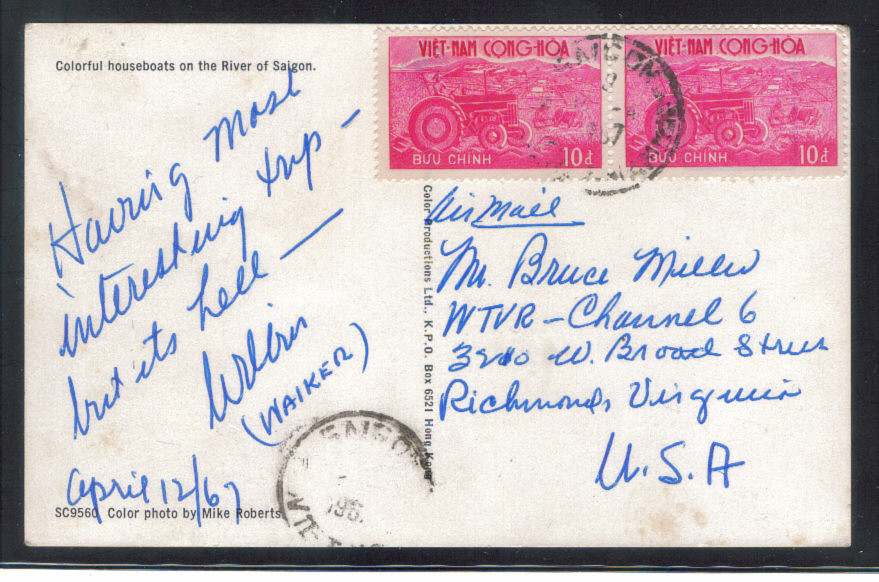 Colorful houseboats on the River of Saigon.
Having most
interesting trip —
but its hell —
(WALKER)
April 12/67
SC9560 Color photo by Mike Roberts
Color Productions Ltd., K.P.O. Box 6521 Hong Kong
VIỆT-NAM CỘNG-HÒA
BƯU CHÍNH 10đ
VIỆT-NAM CỘNG-HÒA
BƯU CHÍNH 10đ
SAIGON
Air Mail
Mr. Bruce Miller
WTVR - Channel 6
W. Broad Street
Richmond, Virginia
U.S.A
SAIGON
196